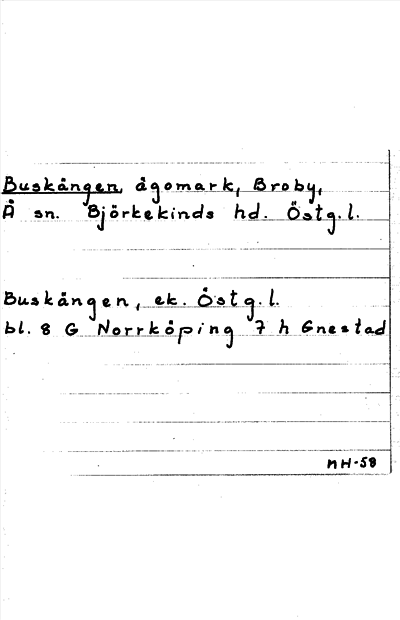 Buskången, ägomark, Broby,
Å sn. Björkekinds hd. Östg.l.
Buskången, ek. Östg.l.
bl. 8 G Norrköping 7 h Gnestad
MH-58